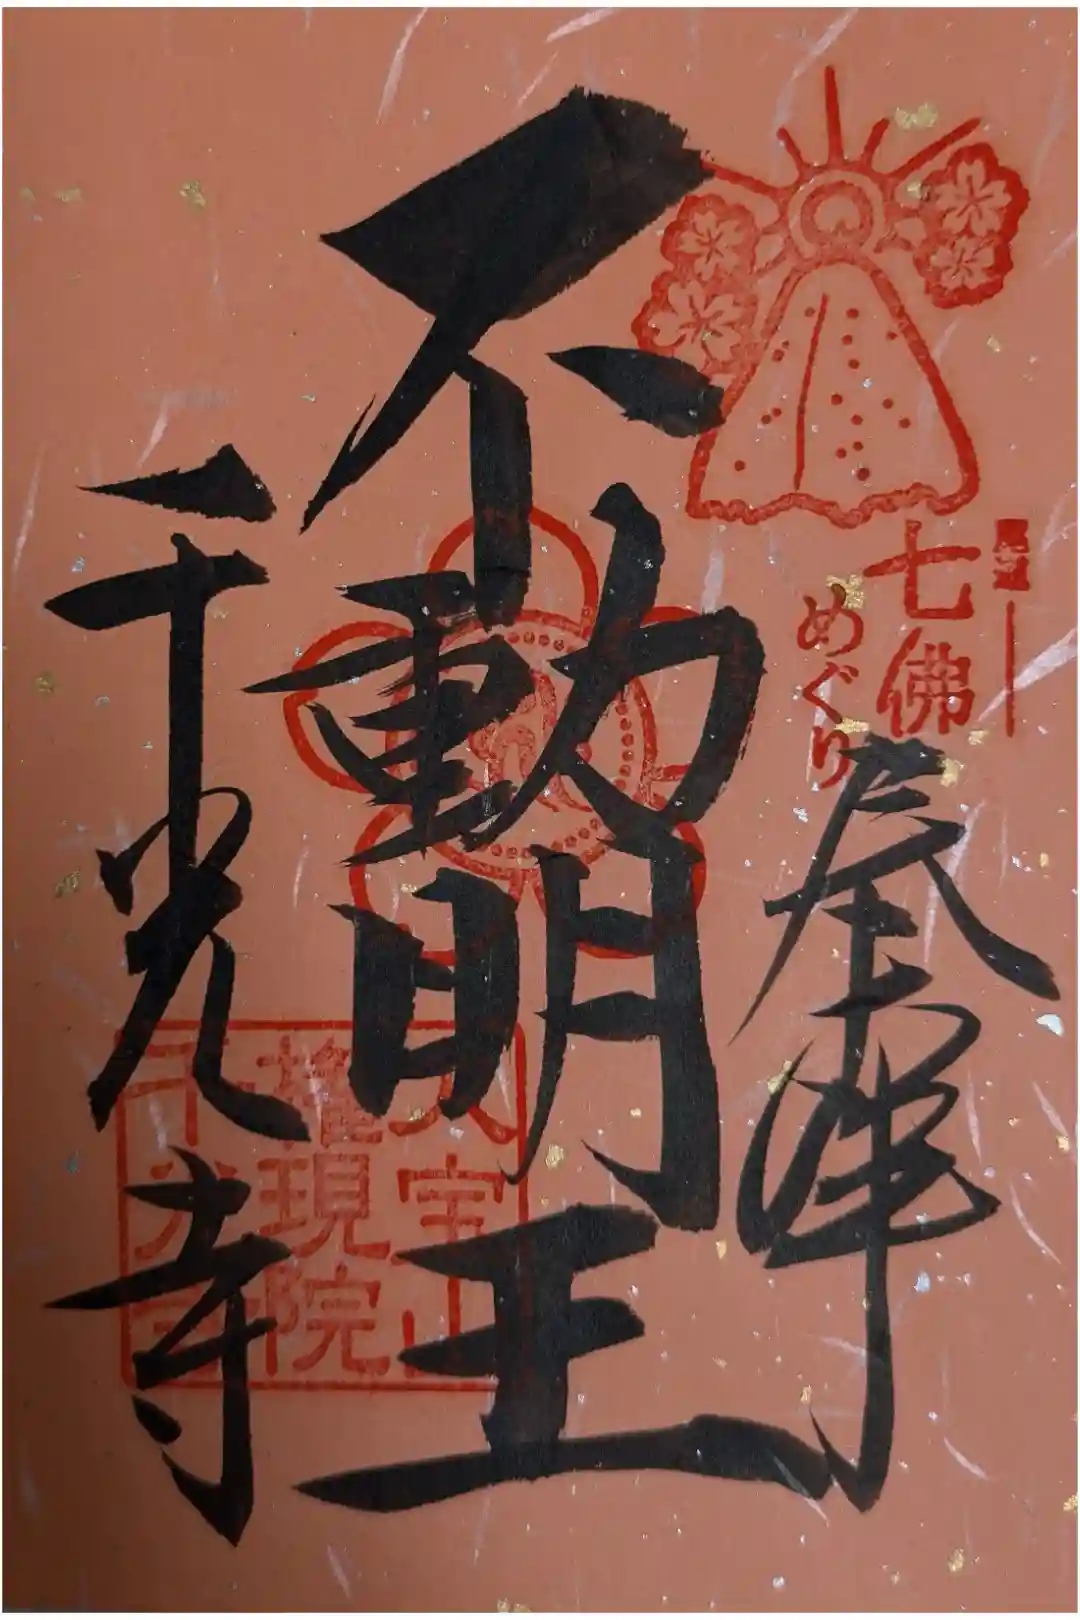 七佛
めぐり
奉拝
不動明王
千光寺
大宝山
権現院
千光寺